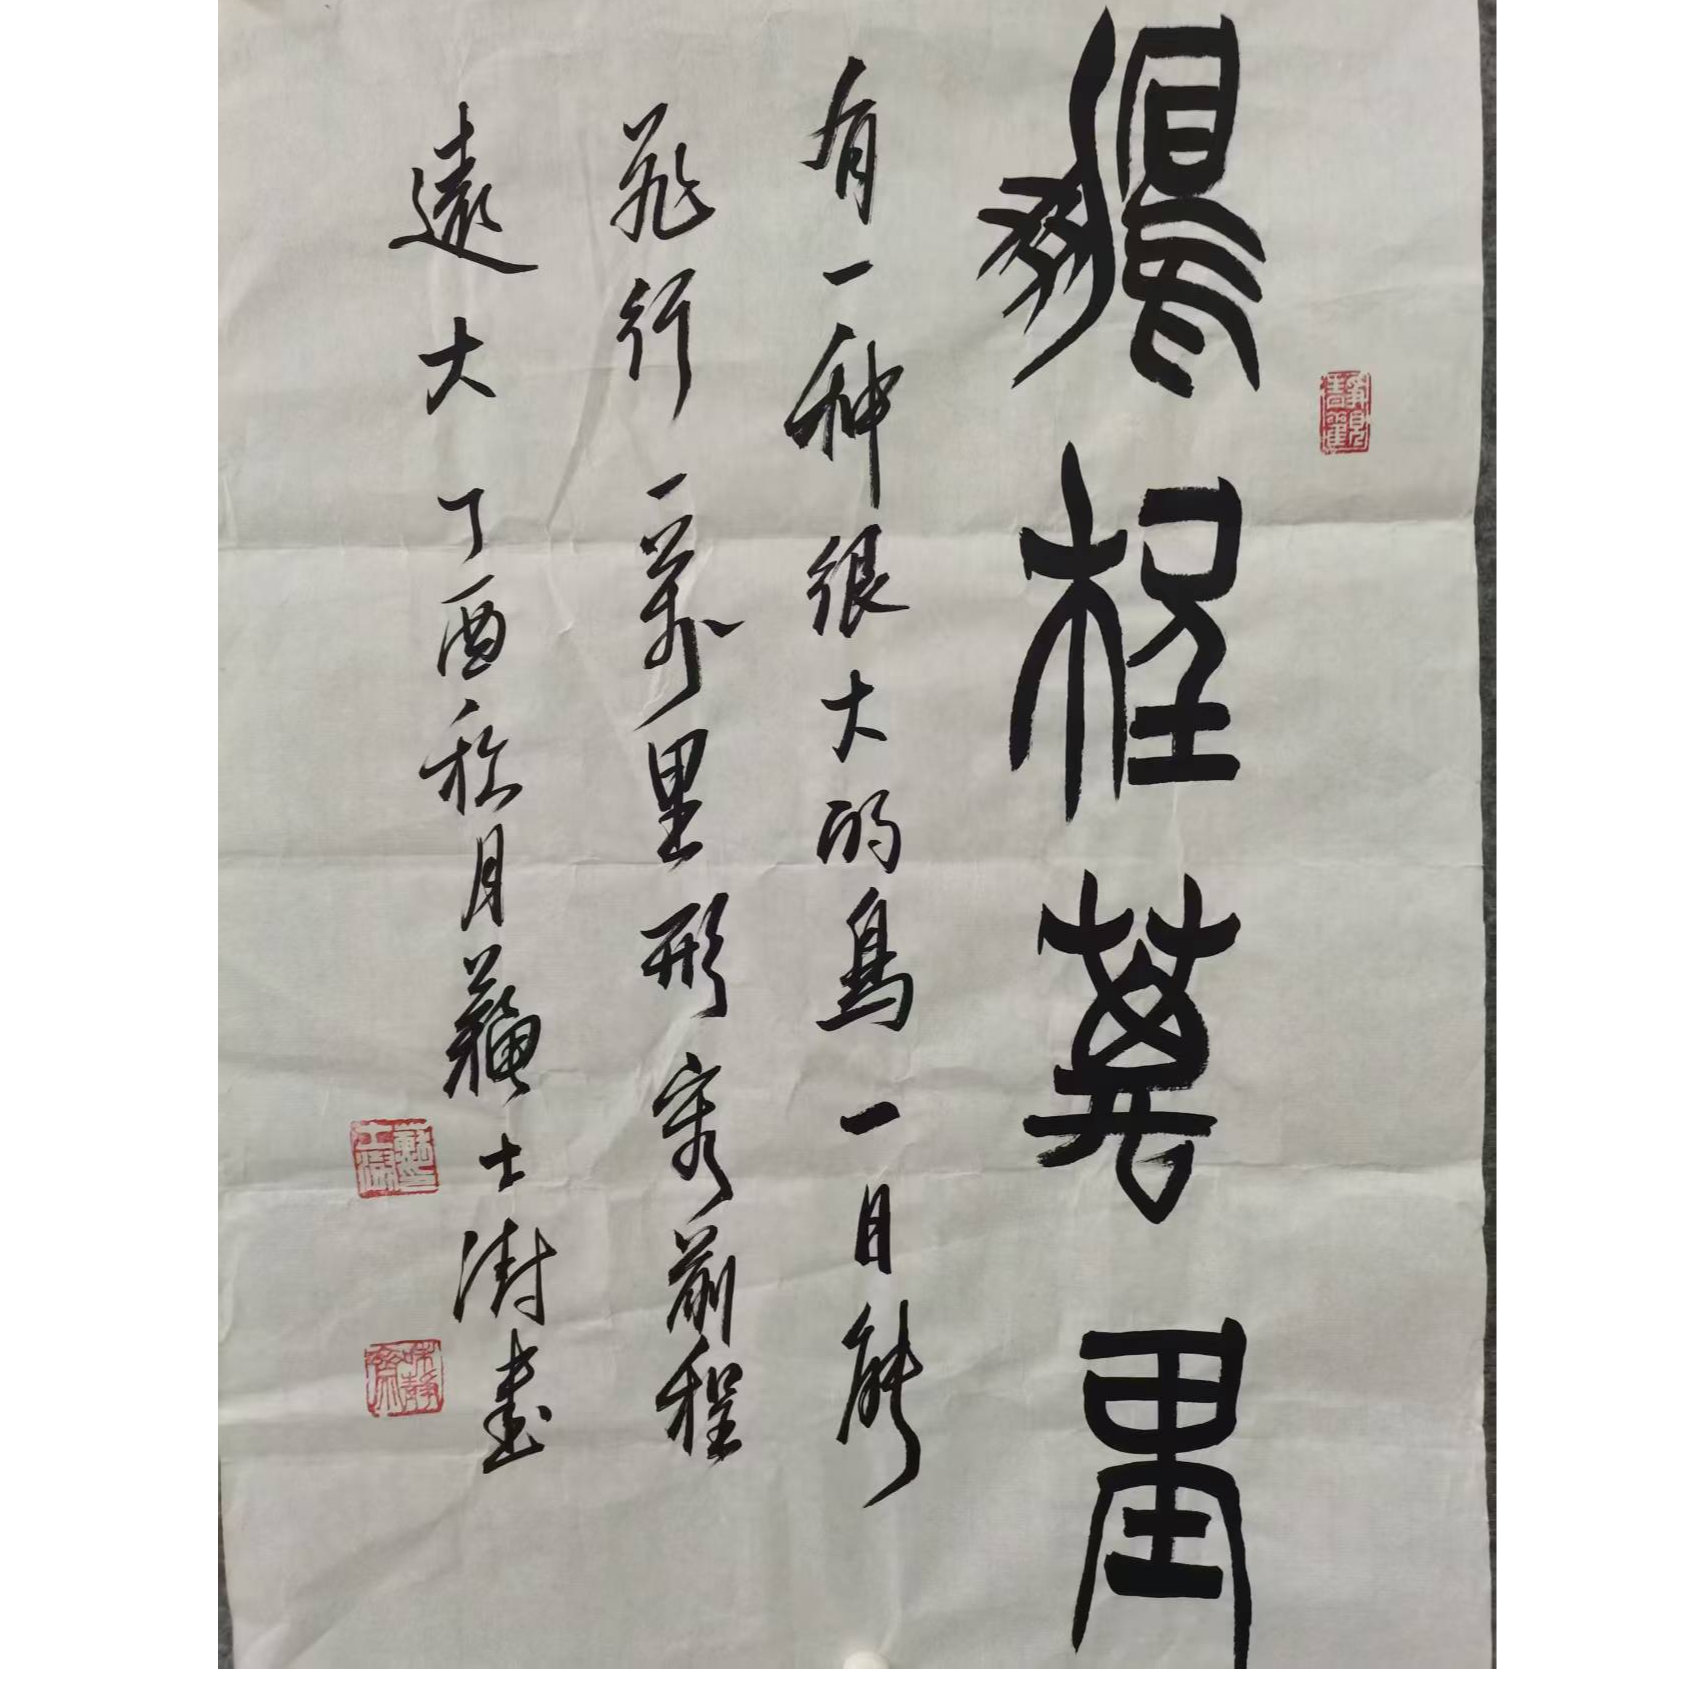 鵬程萬里
有一种很大的鳥一日能
飛行一萬里形容前程
遠大 丁酉秋月蘇士澍書